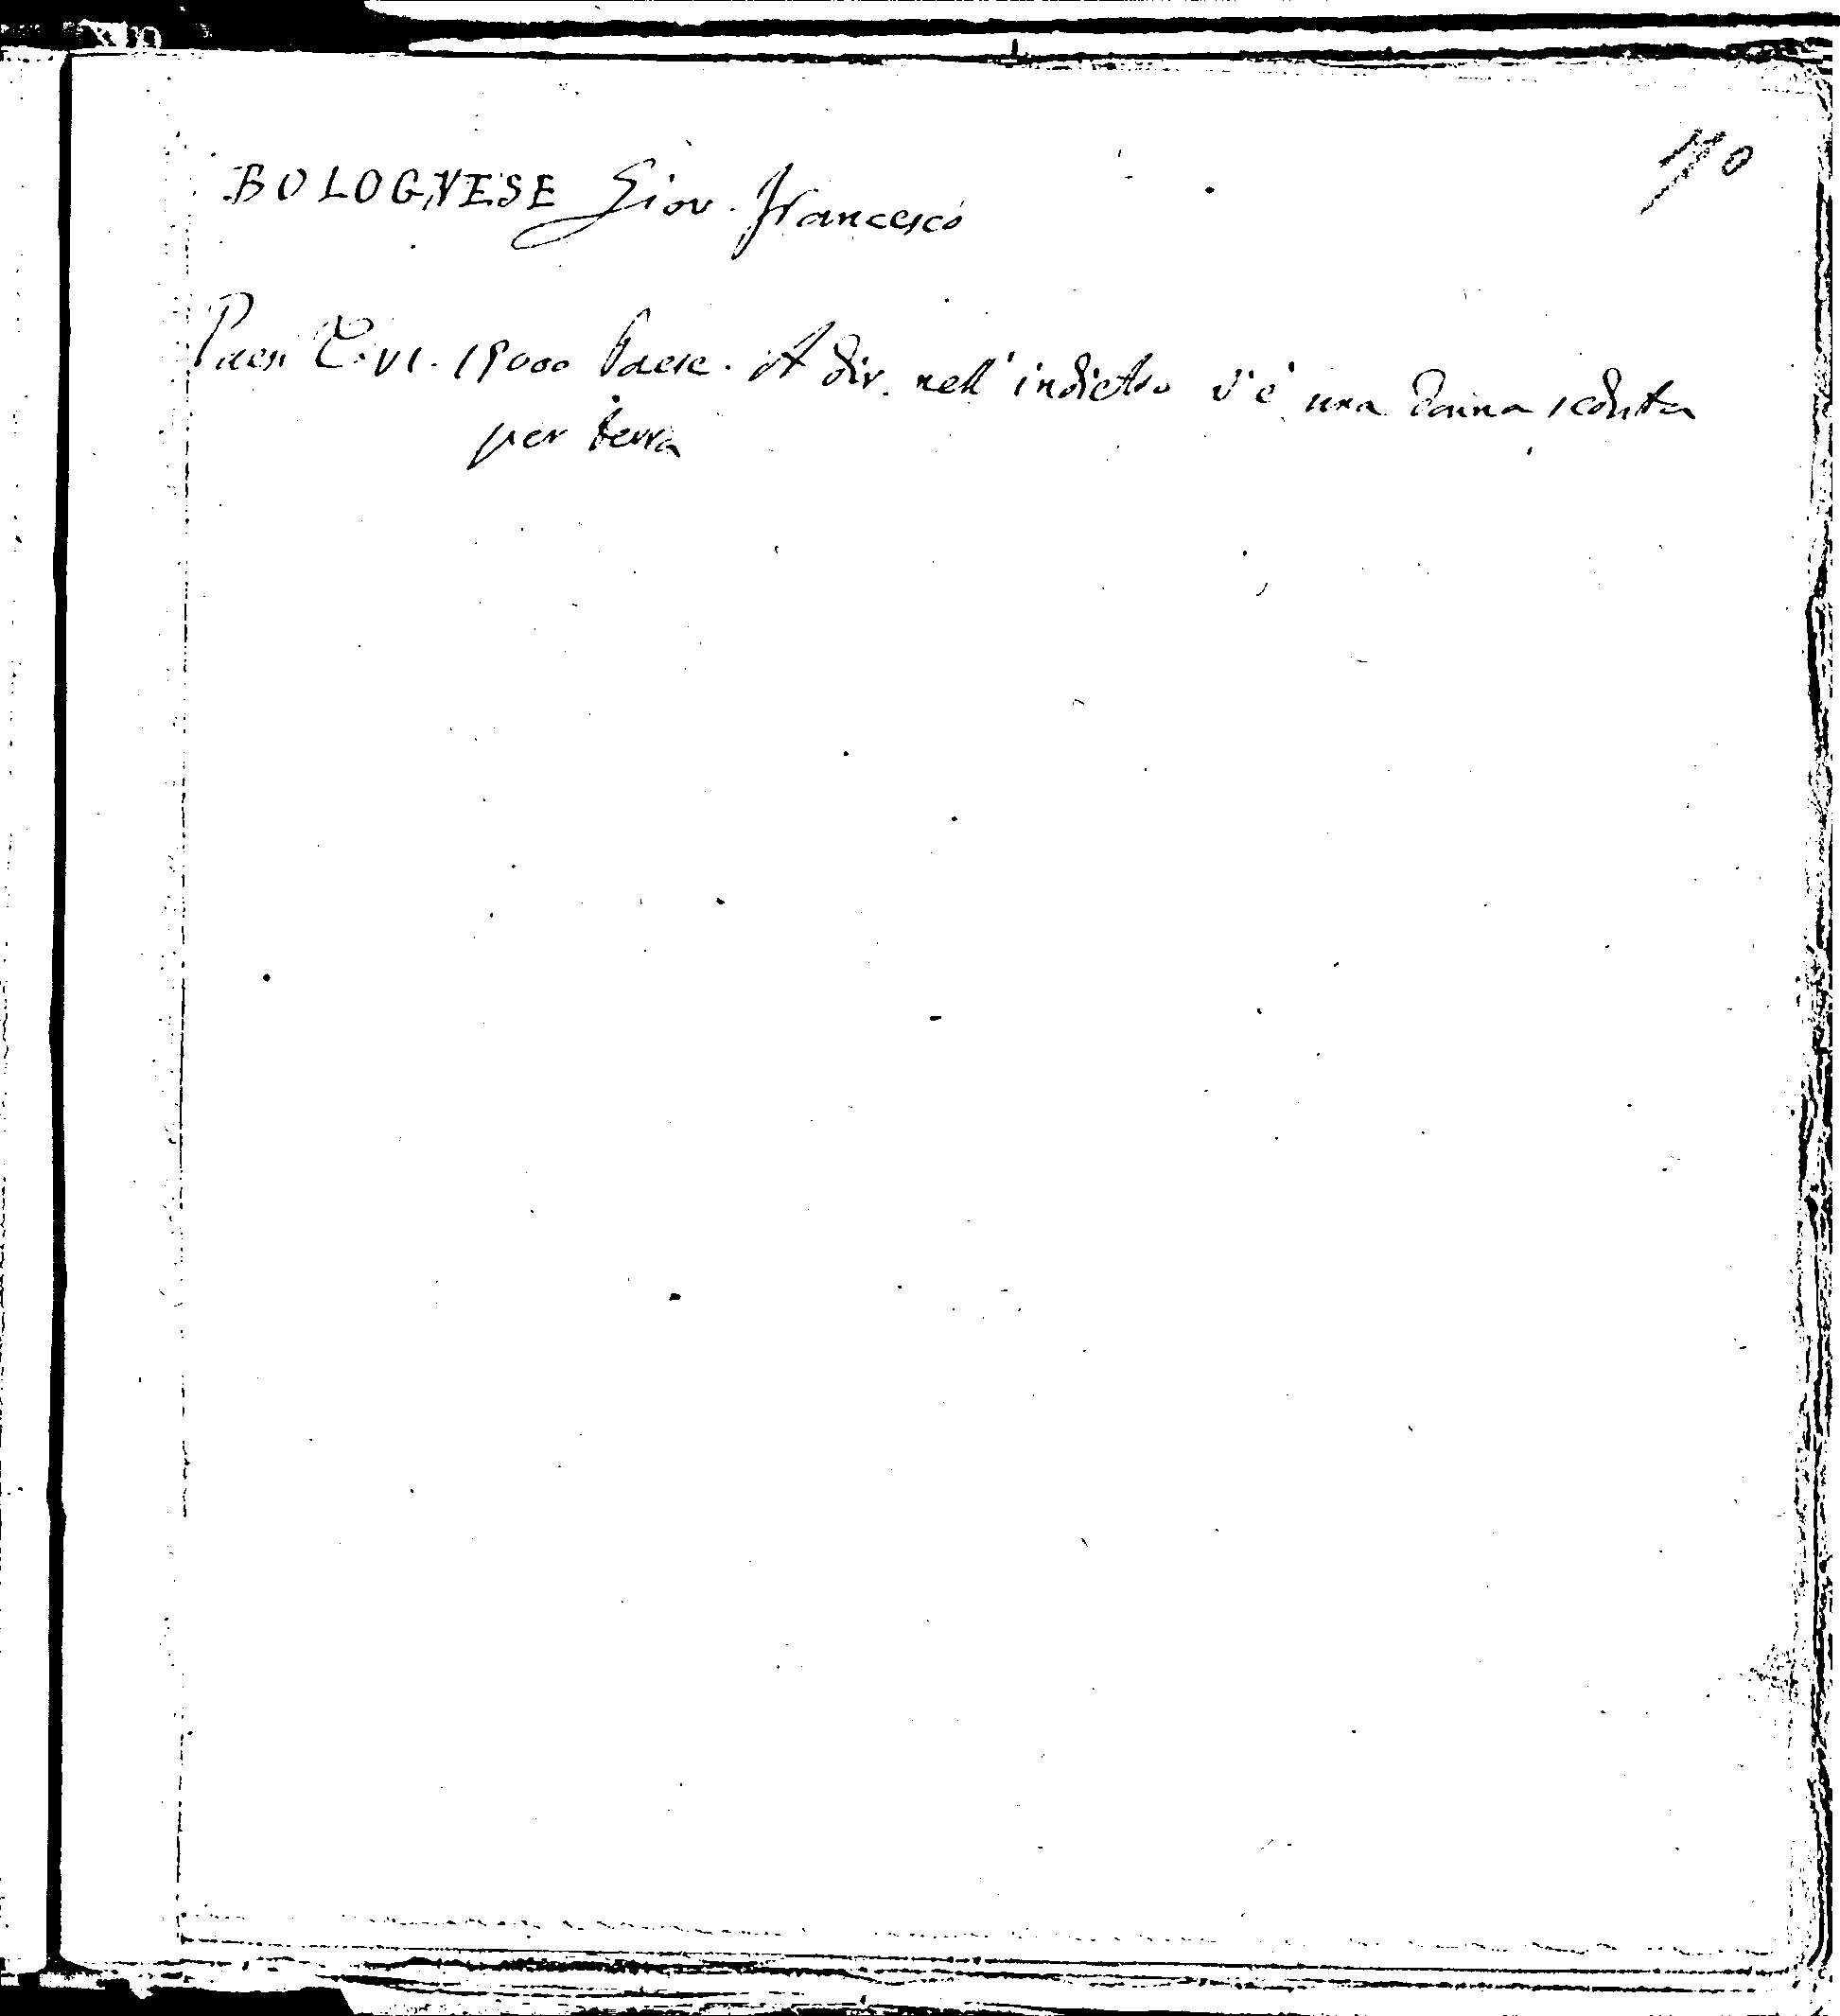 170
BOLOGNESE Giov. Francesco
Paesi T. VI. 19000 Paese. A dir. nell'indietro v'è una donna seduta
per terra